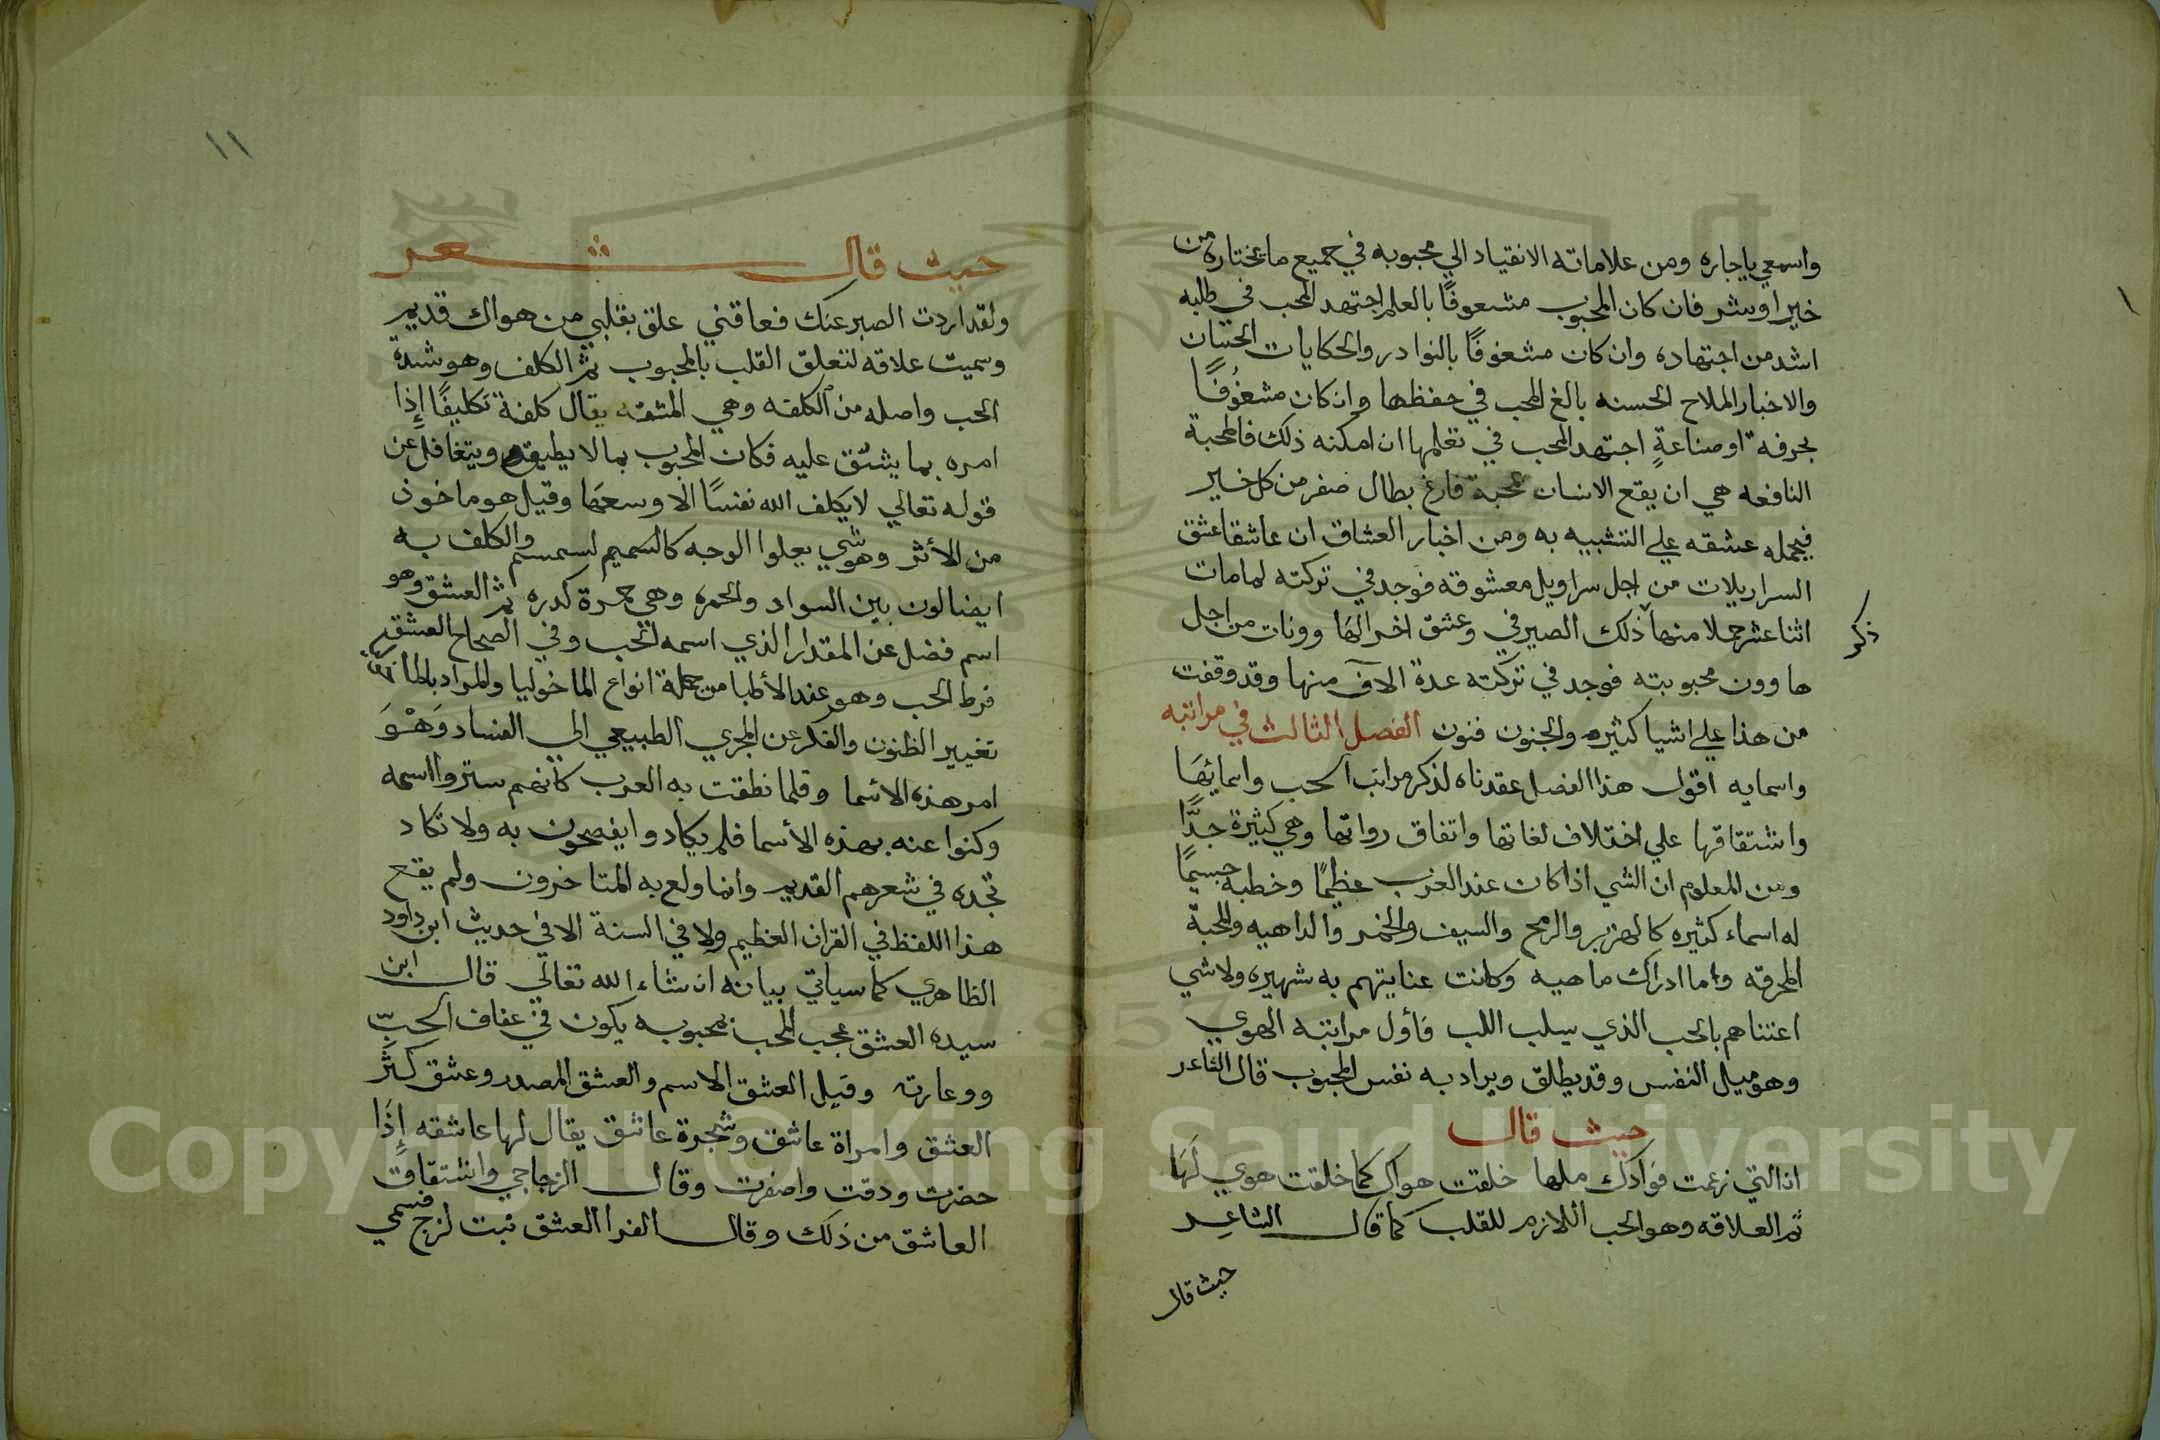 واسمعي ياجاره ومن علاماته الانقياد الي محبوبه في جميع ما يختاره من
خير او شر فان كان المحبوب مشعوفًا بالعلم اجتهد المحب في طلبه
اشد من اجتهاده وان كان مشغوفًا بالنوادر والحكايات الحسان
والاخبار الملاح الحسنه بالغ المحب في حفظها وان كان مشغُوفًا
بحرفة او صناعةٍ اجتهد المحب في تعلمها ان امكنه ذلك فالمحبة
النافعه هي ان يقع الانسان بمحبة فارغ بطال صفر من كل خير
فيحمله عشقه علي التشبيه به ومن اخبار العشاق ان عاشقا عشق
السراريلات من اجل سراويل معشوقه فوجد في تركته لما مات
اثنا عشر حملا منها ذلك الصيرفي وعشق اخر الهَا وونات من اجل
ذكر
ها وون محبوبته فوجد في تركته عدة الآف منها وقد وقفت
من هذا علي اشيا كثيره والجنون فنون الفصل الثالث في مراتبه
واسمايه اقول هذا الفصل عقدناه لذكر مراتب الحب واسمائهَا
واشتقاقها علي اختلاف لغاتها واتفاق رواتها وهي كثيرة جدًّا
ومن المعلوم ان الشي اذا كان عند العرب عظيمًا وخطبه جسيمًا
له اسماء كثيره كالهزبر والرمح والسيف والخمر والداهيه والمحبة
المحرقه وما ادراك ما هيه وكانت عنايتهم به شهيره ولا شي
اعتناهم بالحب الذي يسلب اللب فأول مراتبه الهوي
وهو ميل النفس وقد يطلق ويراد به نفس المحبوب قال الشاعر
حيث قال
ان التي زعمت فوادك ملها خلقت هواك كما خلقت هوي لهَا
ثم العلاقه وهو الحب اللازم للقلب كما قال الشاعر
حيث قال
١١
حيث قال شعر
ولقد اردت الصبر عنك فعاقني علق بقلبي من هواك قديم
وسميت علاقه لتعلق القلب بالمحبوب ثم الكلف وهو شدة
الحب واصله من الكلفه وهي المشقه يقال كلفة تكليفًا إذا
امره بما يشق عليه فكان المحبوب بما لا يطيقه ويتغافل عن
قوله تعالي لا يكلف الله نفسًا الا وسعها وقيل هو ماخوذ
من الأثر وهو شي يعلوا الوجه كالسميم لسمسم والكلف به
ايضا لون بين السواد والحمره وهي حمرة كدره ثم العشق وهو
اسم فضل عن المقدار الذي اسمه الحب وفي الصحاح العشق
فرط الحب وهو عند الأطبا من جملة انواع الماخوليا والمراد بالما
تغيير الظنون والفكر عن المجري الطبيعي الي الفساد وَهْوَ
امر هذه الاسما وقلما نطقت به العرب كانهم ستروا اسمه
وكنوا عنه بهذه الأسما فلم يكادوا يفصحون به ولا تكاد
تجده في شعرهم القديم وانما ولع به المتاخرون ولم يقع
هذا اللفظ في القران العظيم ولا في السنة الا في حديث ابن داود
الظاهري كما سياتي بيانه ان شاء الله تعالي قال ابن
سيده العشق عجب المحب بمحبوبه يكون في عفاف الحبّ
ووعارته وقيل العشق الاسم والعشق المصدر وعشق كثر
العشق وامراة عاشق وشجرة عاشق يقال لها عاشقه إذا
حضرت ودقت واصفرت وقال الزجاجي واشتقاق
العاشق من ذلك وقال الفرا العشق نبت لزج فسمي
Copyright © King Saud University